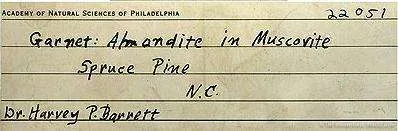 ACADEMY OF NATURAL SCIENCES OF PHILADELPHIA 22051
Garnet: Almandite in Muscovite
Spruce Pine
N.C.
Dr. Harvey P. Barrett